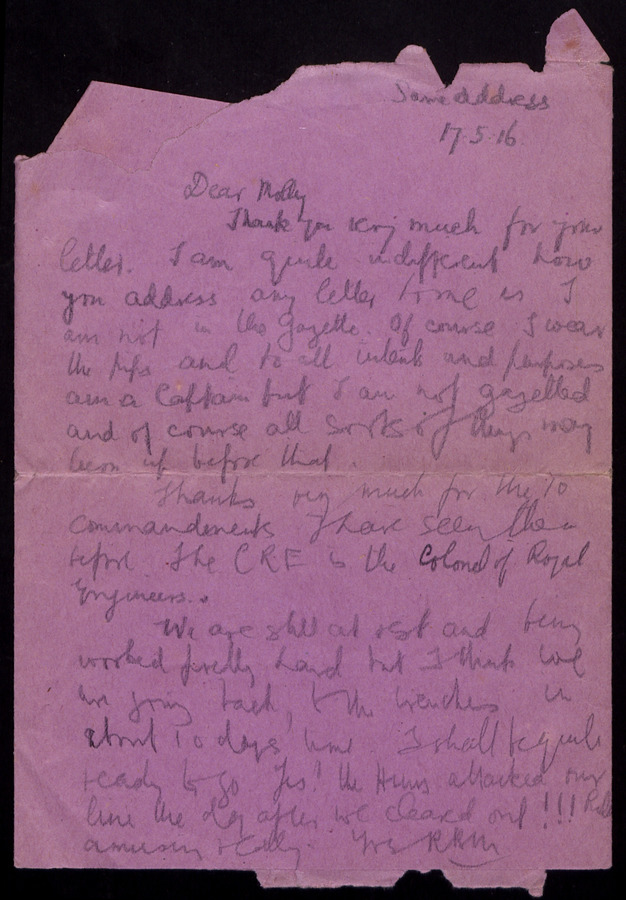 Same address
17.5.16.
Dear Molly
Thank you very much for your
letter. I am quite indifferent how
you address any letter to me as I
am not in the Gazette. Of course I wear
the pips and to all intents and purposes
am a Captain but I am not gazetted
and of course all sorts of things may
before that.
Thanks very much for the 10
commandments I have seen them
before. The CRE is the Colonel of Royal
Engineers.
We are still at rest and being
worked pretty hard but I think we
are going back to the trenches in
about 10 days time. I shall be quite
ready to go Yes! the Huns attacked our
line the day after we cleared out!!!
amusing really. Yrs RBM